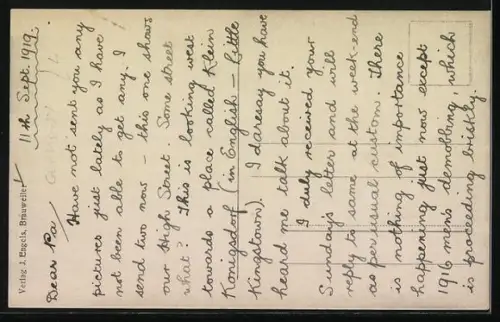 11th Sept. 1919.
Dear Pa/
Have not sent you any
pictures just lately as I have
not been able to get any. I
send two now – this one shows
our High Street. Some street
what? This is looking west
towards a place called Klein
Konigsdorf (in English – Little
Kingstown). I daresay you have
heard me talk about it.
I duly received your
Sunday's letter and will
reply to same at the week-end
as per usual custom. There
is nothing of importance
happening just now except
1916 men's demobbing, which
is proceeding briskly.
Verlag J. Engels, Brauweiler